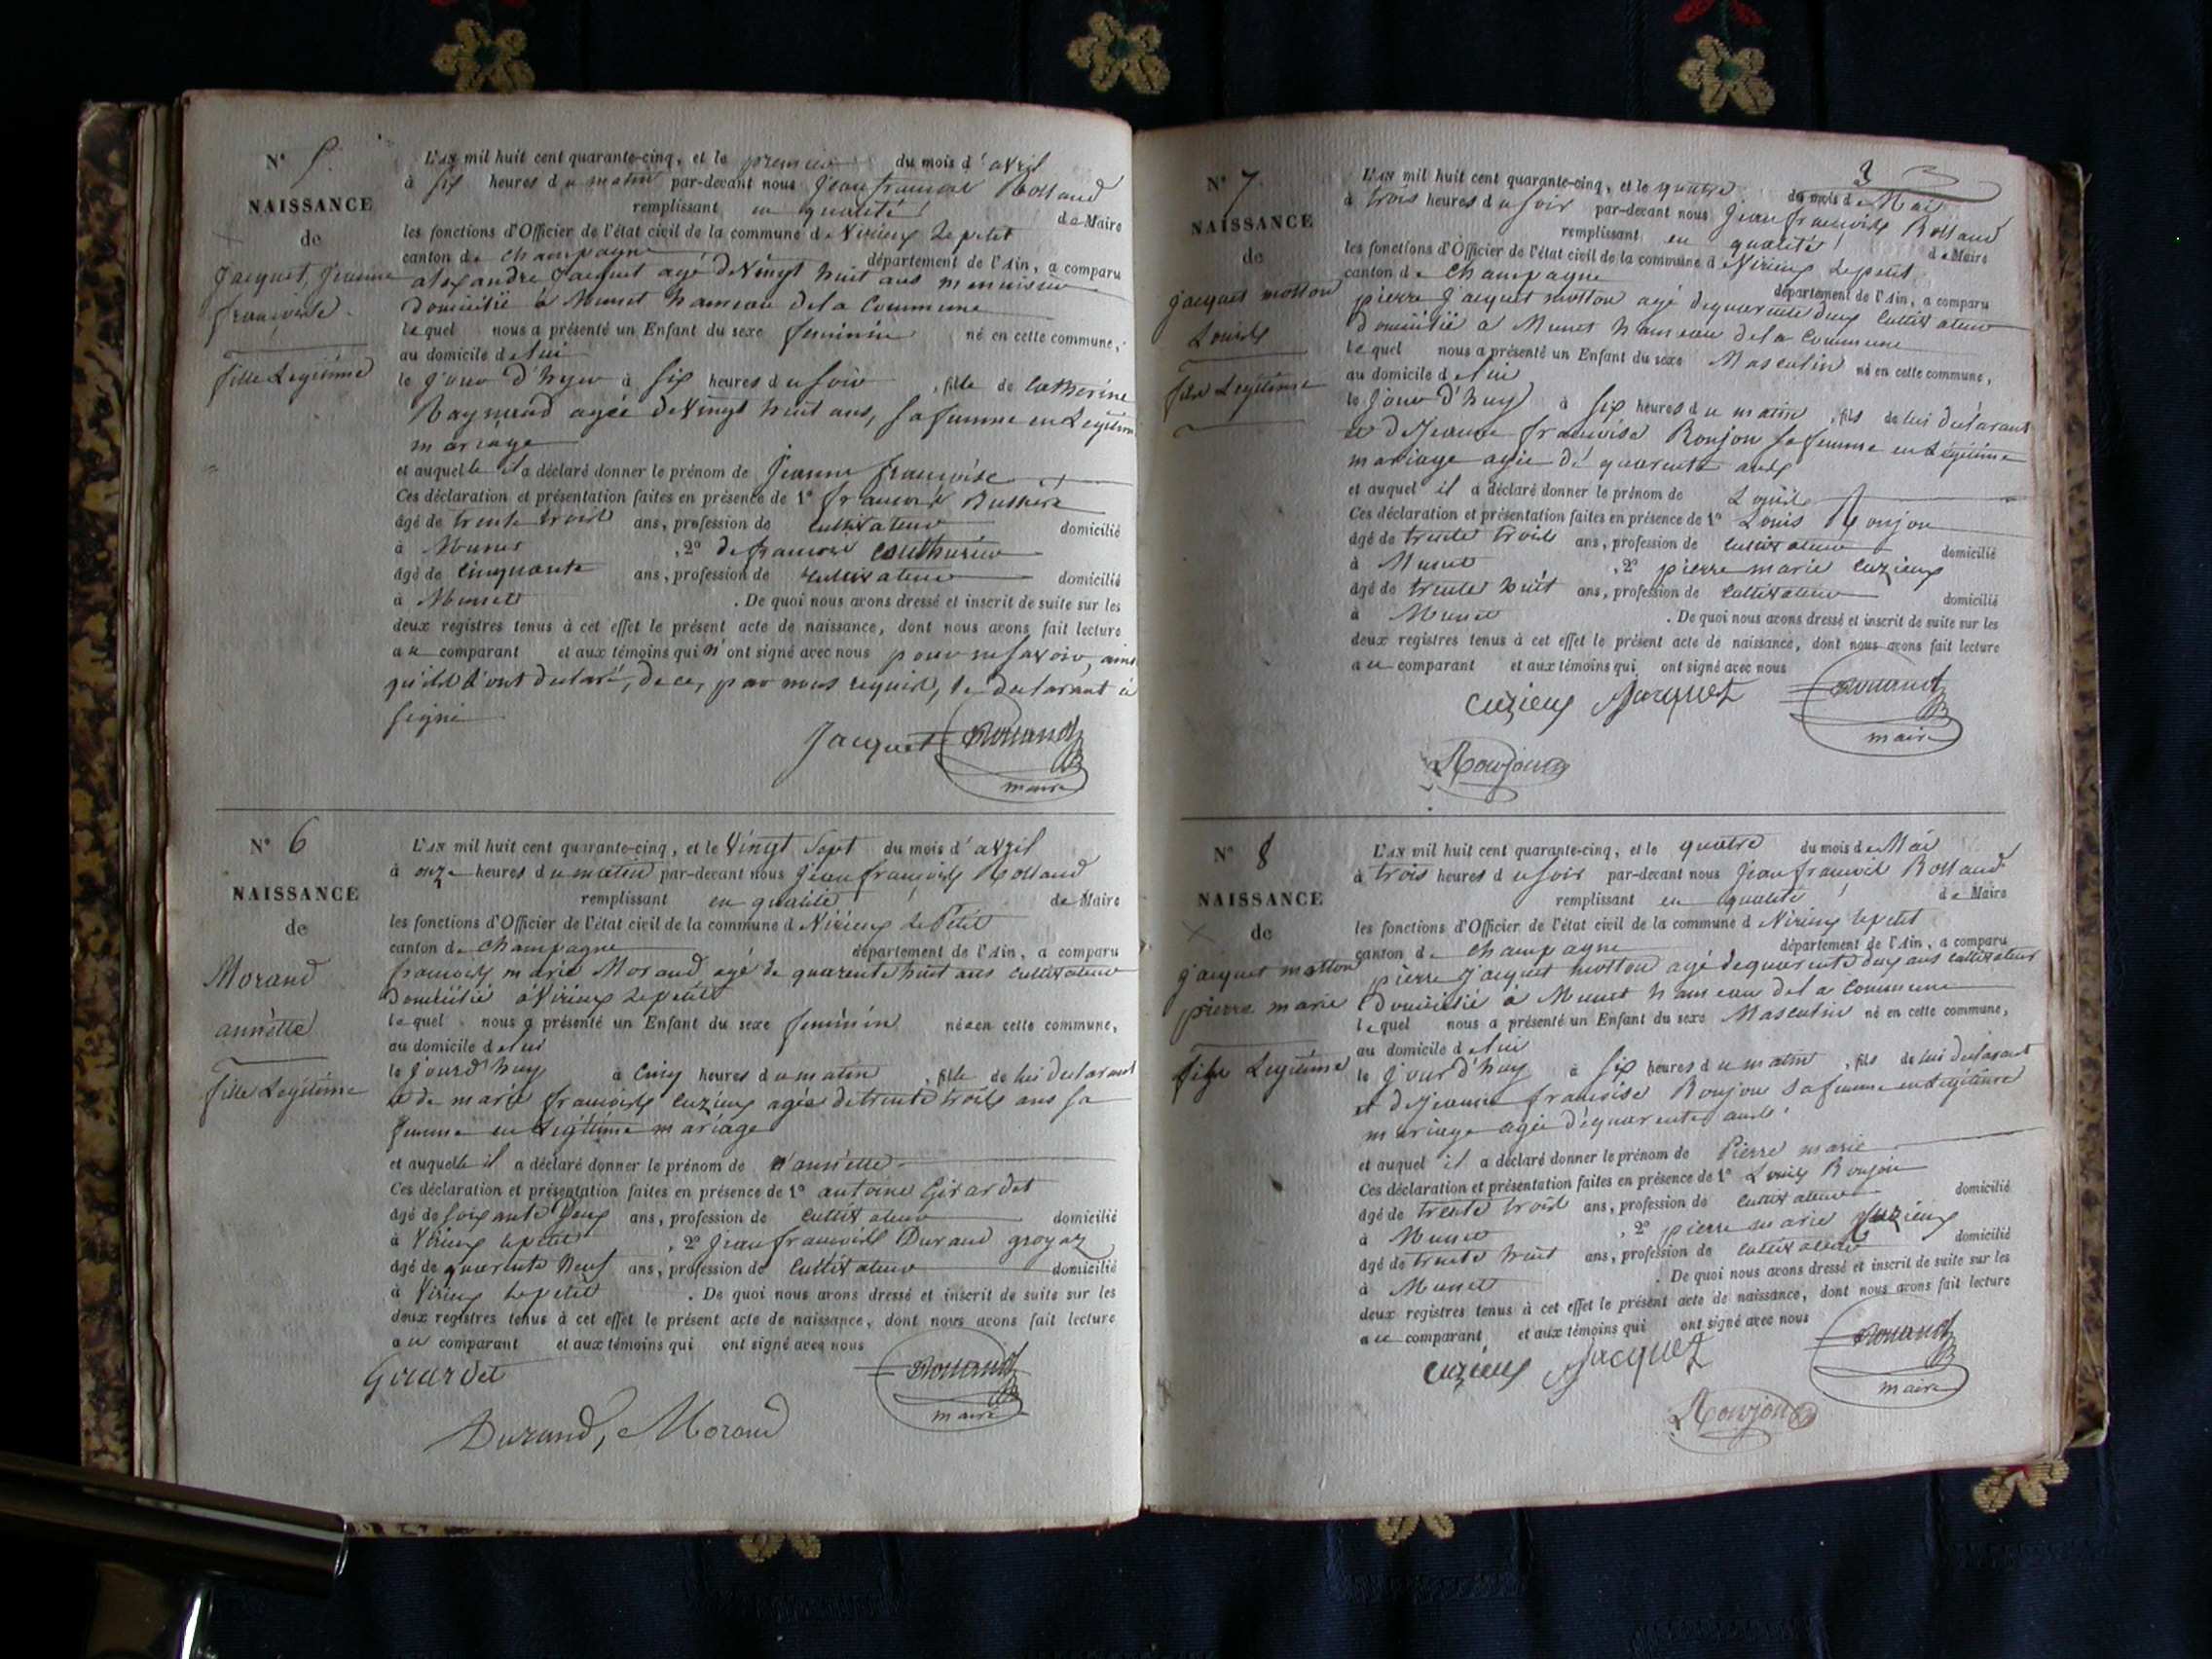 N° 5.
NAISSANCE
de
Jacquet, Jeanne
françoise
fille Legitime
L'AN mil huit cent quarante-cinq, et le premier du mois d'avril
à six heures du matin par-devant nous Jean françois Rolland
remplissant en qualité de Maire
les fonctions d'Officier de l'état civil de la commune de Virieux Le petit
canton de Champagne département de l'Ain, a comparu
alexandre Jacquet agé de Vingt huit ans menuisier
domicilié à Munet hameau de la Commune
lequel nous a présenté un Enfant du sexe feminin né en cette commune,
au domicile de lui
le jour d'hyer à six heures du soir, fille de Catherine
Raymond agée de Vingt huit ans, sa femme en Legitime
mariage
et auquelle il a déclaré donner le prénom de Jeanne françoise
Ces déclaration et présentation faites en présence de 1° françois
âgé de trente trois ans, profession de Cultivateur domicilié
à Munet, 2° de françois
âgé de Cinquante ans, profession de Cultivateur domicilié
à Munet. De quoi nous avons dressé et inscrit de suite sur les
deux registres tenus à cet effet le présent acte de naissance, dont nous avons fait lecture
au comparant et aux témoins qui n'ont signé avec nous pour ne savoir, ainsi
qu'ils l'ont declaré, de ce, par nous requis, le declarant à
signé
Jacquet Rolland
maire
N° 6
NAISSANCE
de
Morand
annette
fille Legitime
L'AN mil huit cent quarante-cinq, et le Vingt Sept du mois d'avril
à onze heures du matin par-devant nous Jean françois Rolland
remplissant en qualité de Maire
les fonctions d'Officier de l'état civil de la commune d Virieux Le Petit
canton de Champagne département de l'Ain, a comparu
françois marie Morand agé de quarente huit ans cultivateur
Domicilié à Virieux Le petit
lequel nous a présenté un Enfant du sexe feminin née en cette commune,
au domicile de lui
le jourd'huy à Cinq heures du matin, fille de lui declarant
et de marie françoise Cuzieux agée de trente trois ans sa
femme en Legitime mariage
et auquelle il a déclaré donner le prénom de d'annette
Ces déclaration et présentation faites en présence de 1° antoine Girardet
âgé de soixante Deux ans, profession de Cultivateur domicilié
à Virieux le petit, 2° Jean françois Durand groyaz
âgé de quarente Neuf ans, profession de Cultivateur domicilié
à Virieux le petit. De quoi nous avons dressé et inscrit de suite sur les
deux registres tenus à cet effet le présent acte de naissance, dont nous avons fait lecture
au comparant et aux témoins qui ont signé avec nous
Girardet Rolland
maire
Durand, Morand
3
N° 7
NAISSANCE
de
jacquet motton
Louis
fils Legitime
L'AN mil huit cent quarante-cinq, et le quatre du mois de Mai
à trois heures du soir par-devant nous Jean françois Rolland
remplissant en qualité de Maire
les fonctions d'Officier de l'état civil de la commune d Virieux Le petit
canton de Champagne département de l'Ain, a comparu
pierre Jacquet motton agé de quarente deux Cultivateur
domicilié à Munet hameau de la Commune
lequel nous a présenté un Enfant du sexe Masculin né en cette commune,
au domicile de lui
le jour d'huy à six heures du matin, fils de lui declarant
et de Jeanne françoise Roujon sa femme en Légitime
mariage agée de quarente ans
et auquel il a déclaré donner le prénom de Louis
Ces déclaration et présentation faites en présence de 1° Louis Roujon
âgé de trente trois ans, profession de Cultivateur domicilié
à Munet, 2° pierre marie Cuzieux
âgé de trente huit ans, profession de Cultivateur domicilié
à Munet. De quoi nous avons dressé et inscrit de suite sur les
deux registres tenus à cet effet le présent acte de naissance, dont nous avons fait lecture
au comparant et aux témoins qui ont signé avec nous
Cuzieux Jacquet Rolland
maire
Roujon
N° 8
NAISSANCE
de
jacquet motton
pierre marie
fils Legitime
L'AN mil huit cent quarante-cinq, et le quatre du mois de Mai
à trois heures d u soir par-devant nous Jean françois Rolland
remplissant en qualité de Maire
les fonctions d'Officier de l'état civil de la commune d Virieux le petit
canton de Champagne département de l'Ain, a comparu
pierre jacquet motton agé de quarente deux ans cultivateur
Domicilié à Munet hameau de la Commune
lequel nous a présenté un Enfant du sexe Masculin né en cette commune,
au domicile de lui
le jour d'huy à six heures du matin, fils de lui declarant
et de Jeanne françoise Roujon sa femme en Legitime
mariage agée de quarente ans
et auquel il a déclaré donner le prénom de Pierre marie
Ces déclaration et présentation faites en présence de 1° Louis Roujon
âgé de trente trois ans, profession de Cultivateur domicilié
à Munet, 2° pierre marie Cuzieux
âgé de trente huit ans, profession de Cultivateur domicilié
à Munet. De quoi nous avons dressé et inscrit de suite sur les
deux registres tenus à cet effet le présent acte de naissance, dont nous avons fait lecture
au comparant et aux témoins qui ont signé avec nous
Cuzieux Jacquet Rolland
maire
Roujon